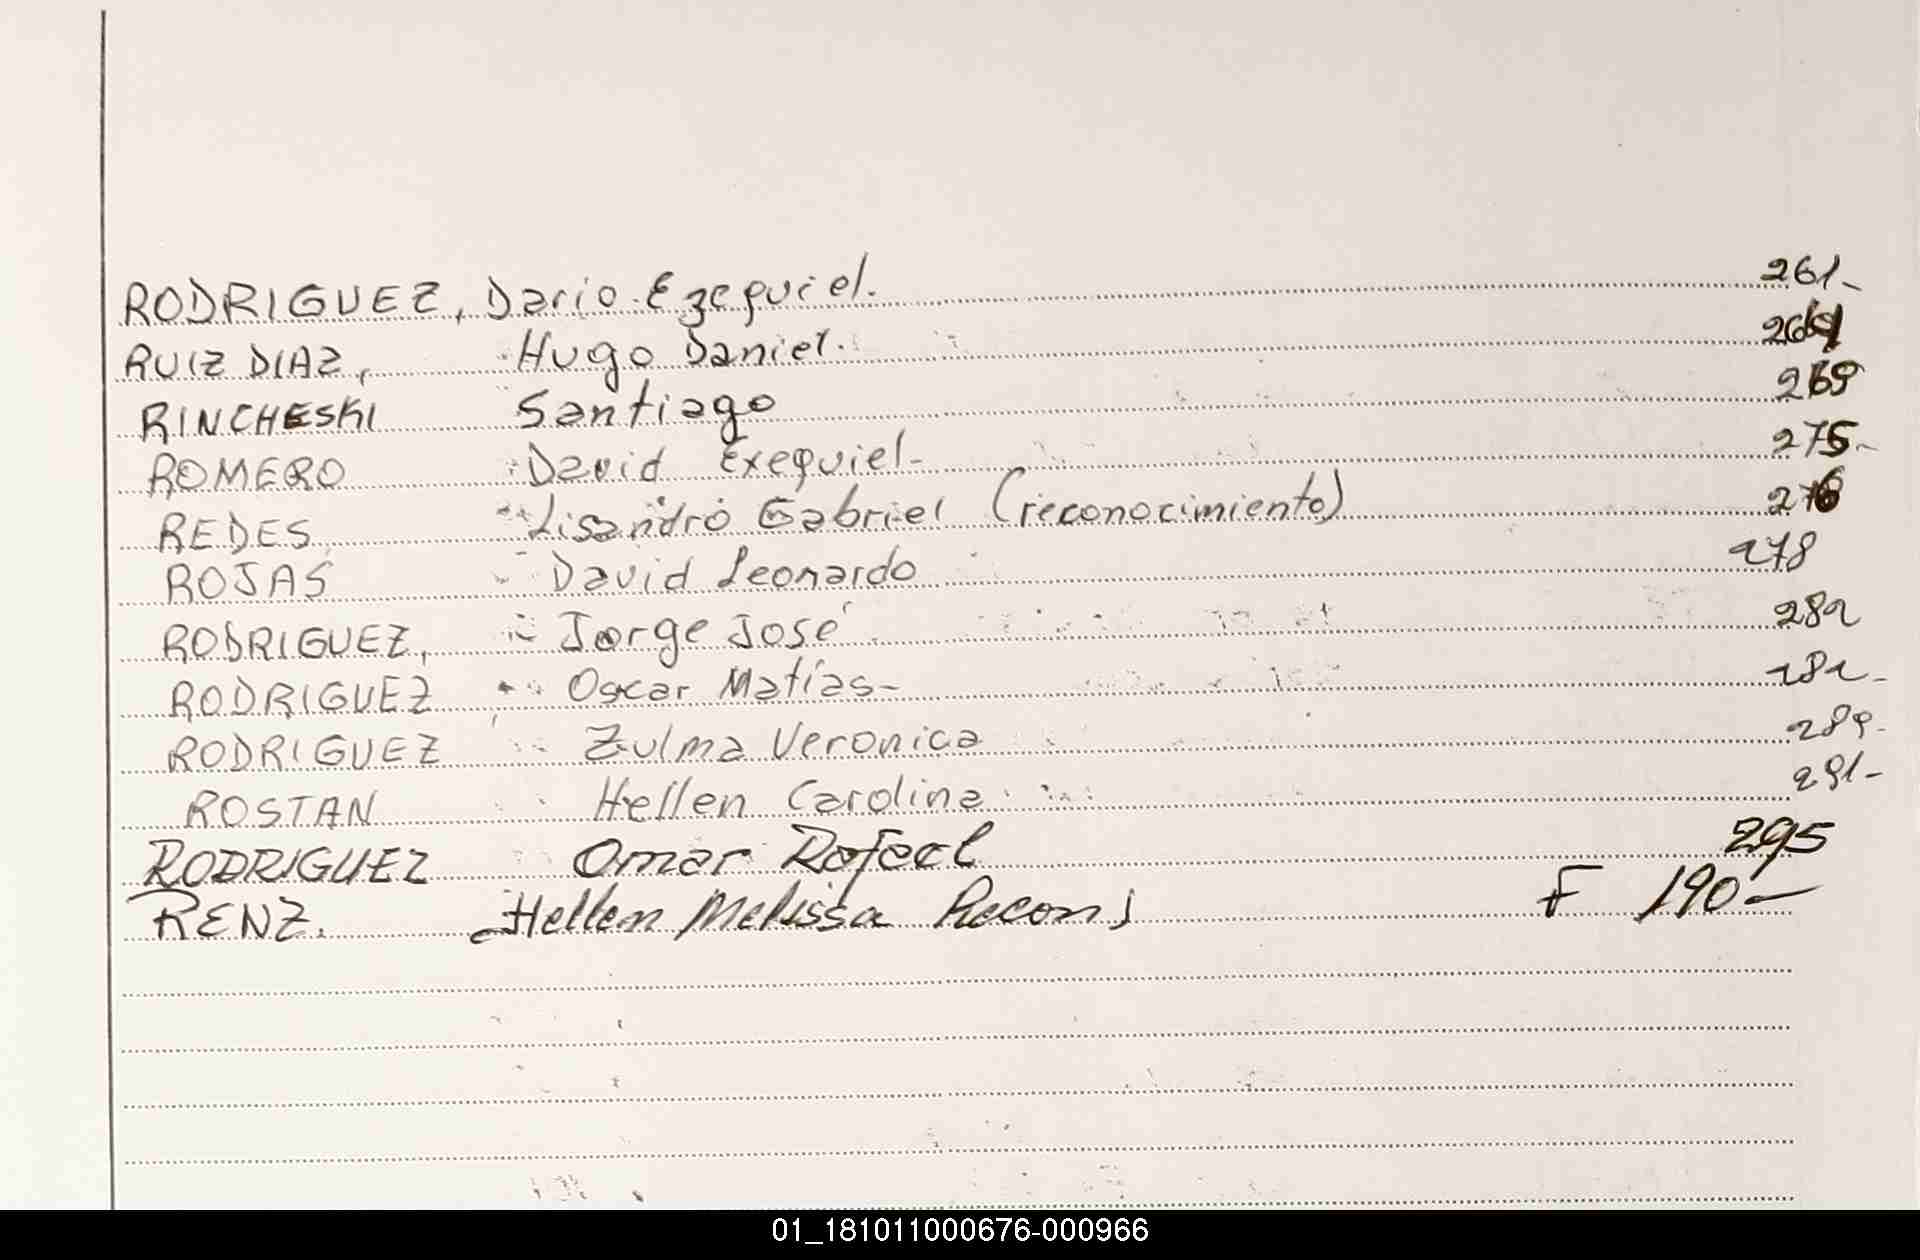 RODRIGUEZ, Dario Ezequiel. 261-
RUIZ DIAZ, Hugo Daniel. 264
RINCHESKI Santiago 269
ROMERO David Exequiel- 275-
REDES Lisandro Gabriel (reconocimiento) 276
ROJAS David Leonardo 278
RODRIGUEZ, Jorge José 282
RODRIGUEZ Oscar Matías- 282-
RODRIGUEZ Zulma Veronica 289-
ROSTAN Hellen Carolina 291-
RODRIGUEZ Omar Rafael 295
RENZ. Hellem Melissa Recon) F 190-
01_181011000676-000966